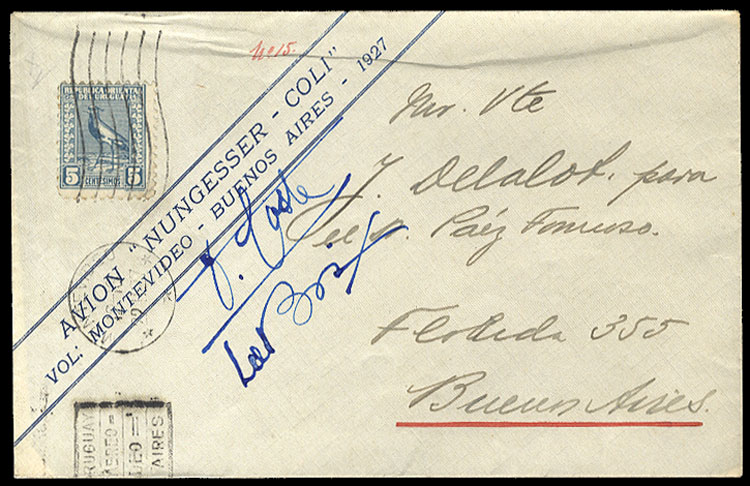 No 15.
REPUBLICA ORIENTAL
DEL URUGUAY
5 5
CENTESIMOS
AVION "NUNGESSER - COLI"
VOL: MONTEVIDEO - BUENOS AIRES - 1927
Mr. Vte
J. Delalot. para
Páez Formoso.
Florida 355
Buenos Aires.
J. Coste
Le Brix
URUGUAY
AEREO
DEO
AIRES